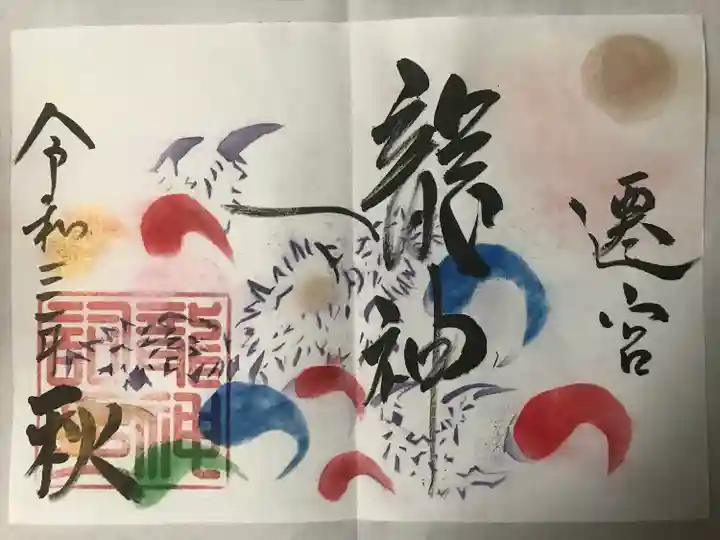 遷宮
龍神
令和三年
秋
龍神